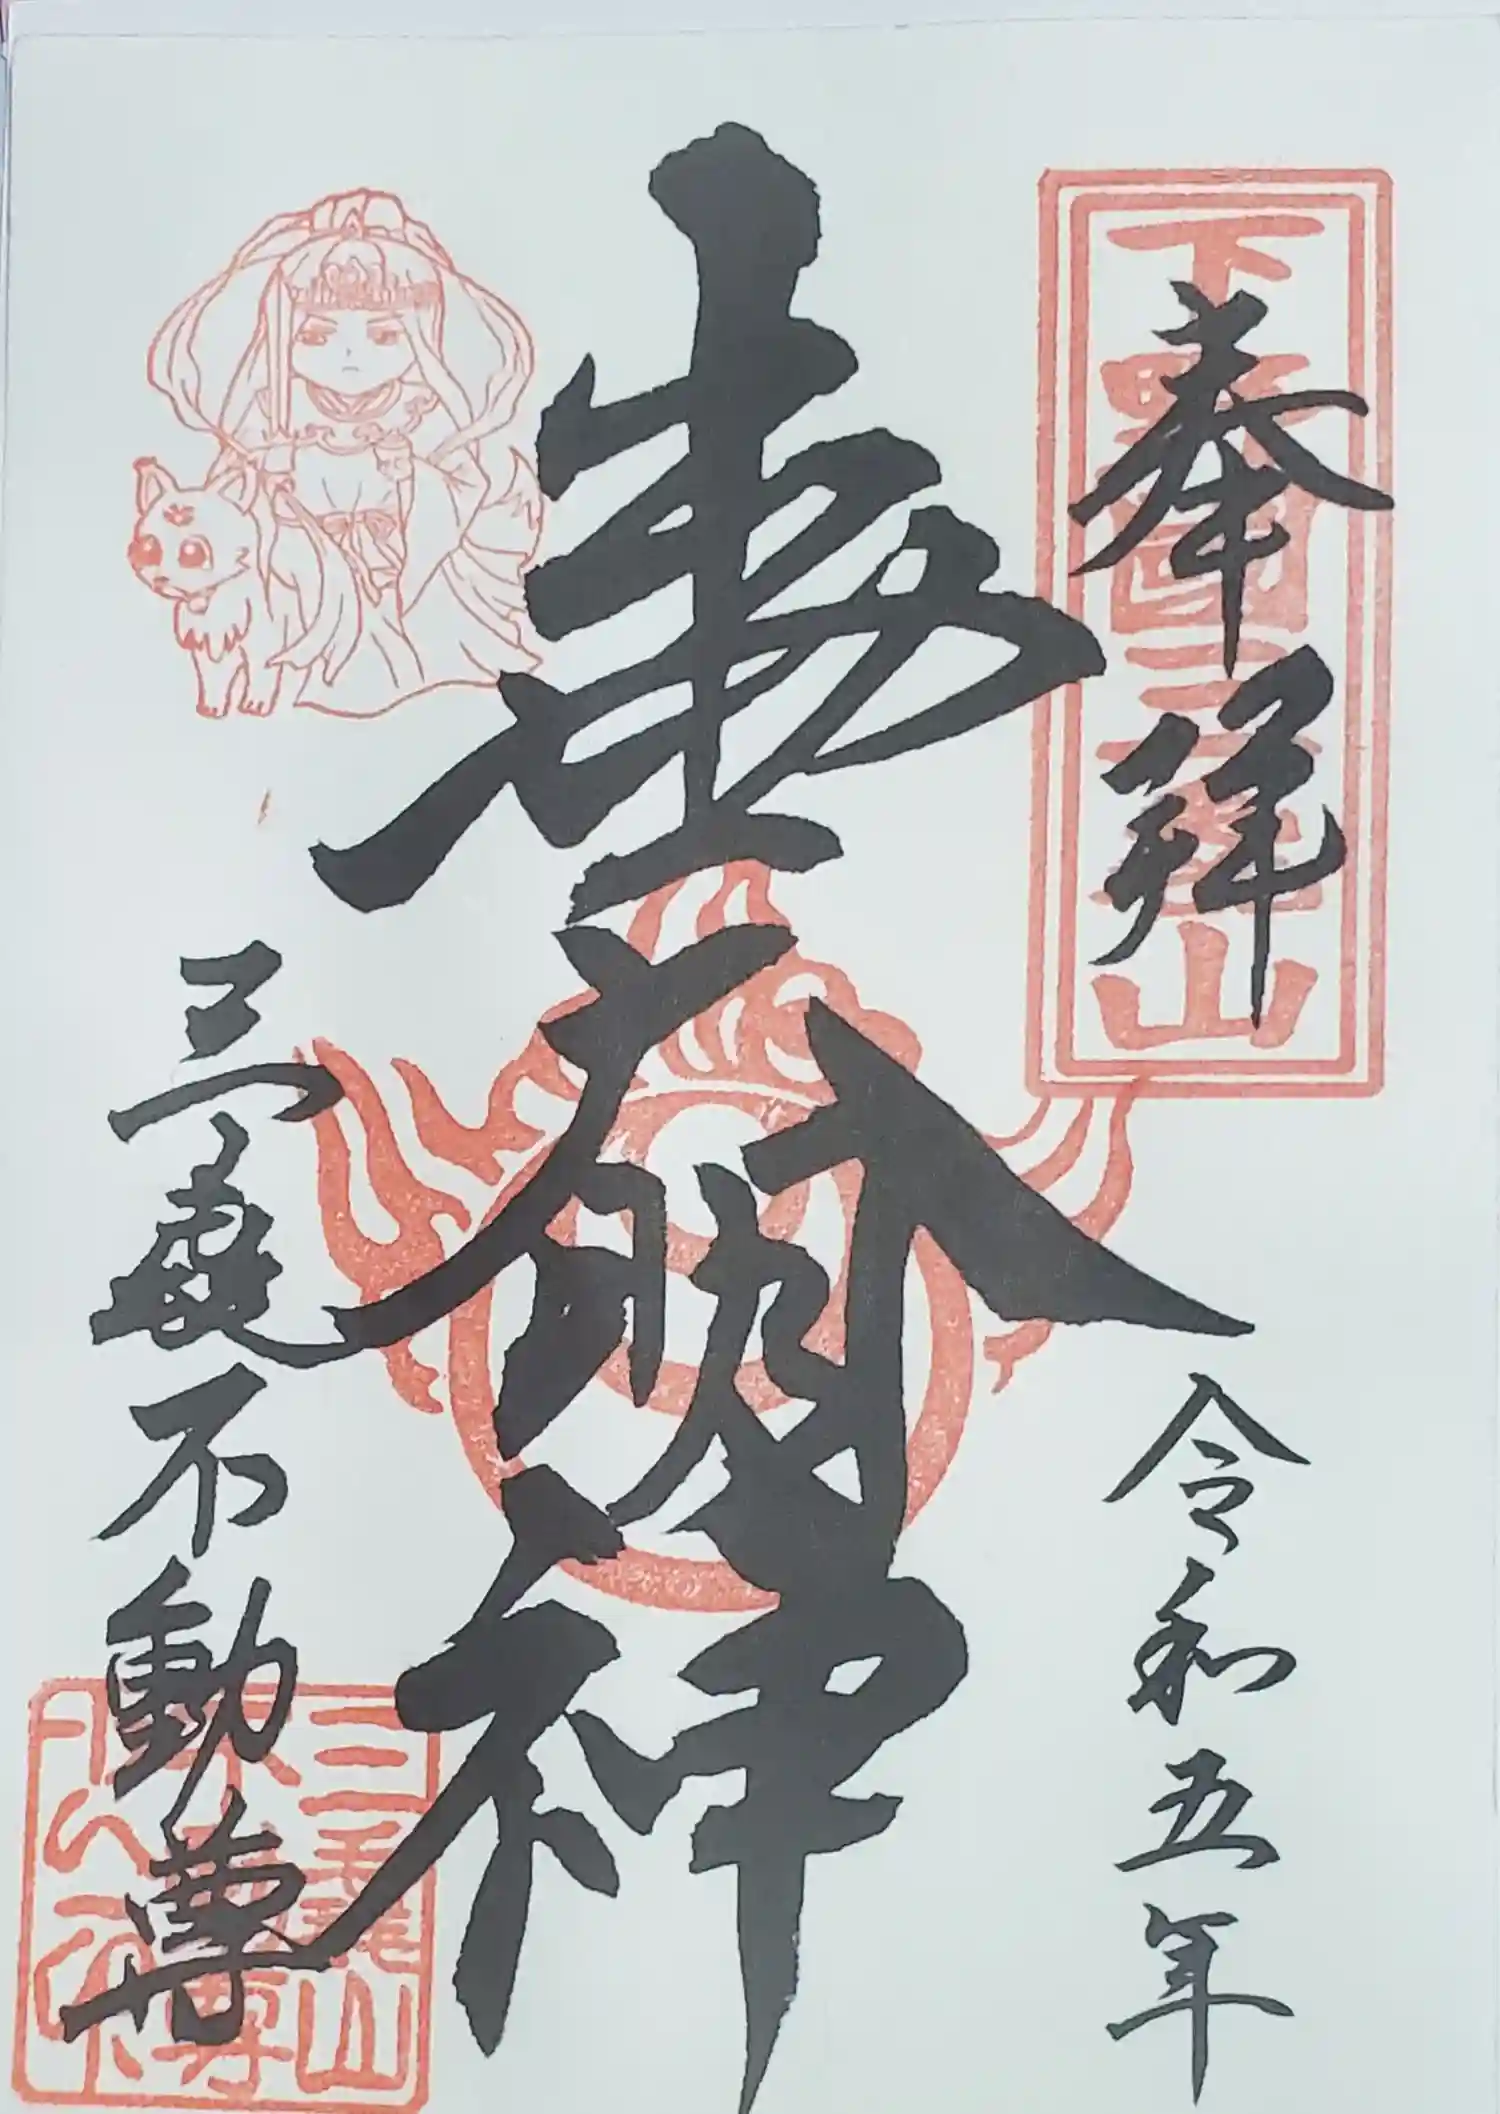 下野國三毳山
奉拜
令和五年
明神
三毳不動尊
三毳山
不動尊